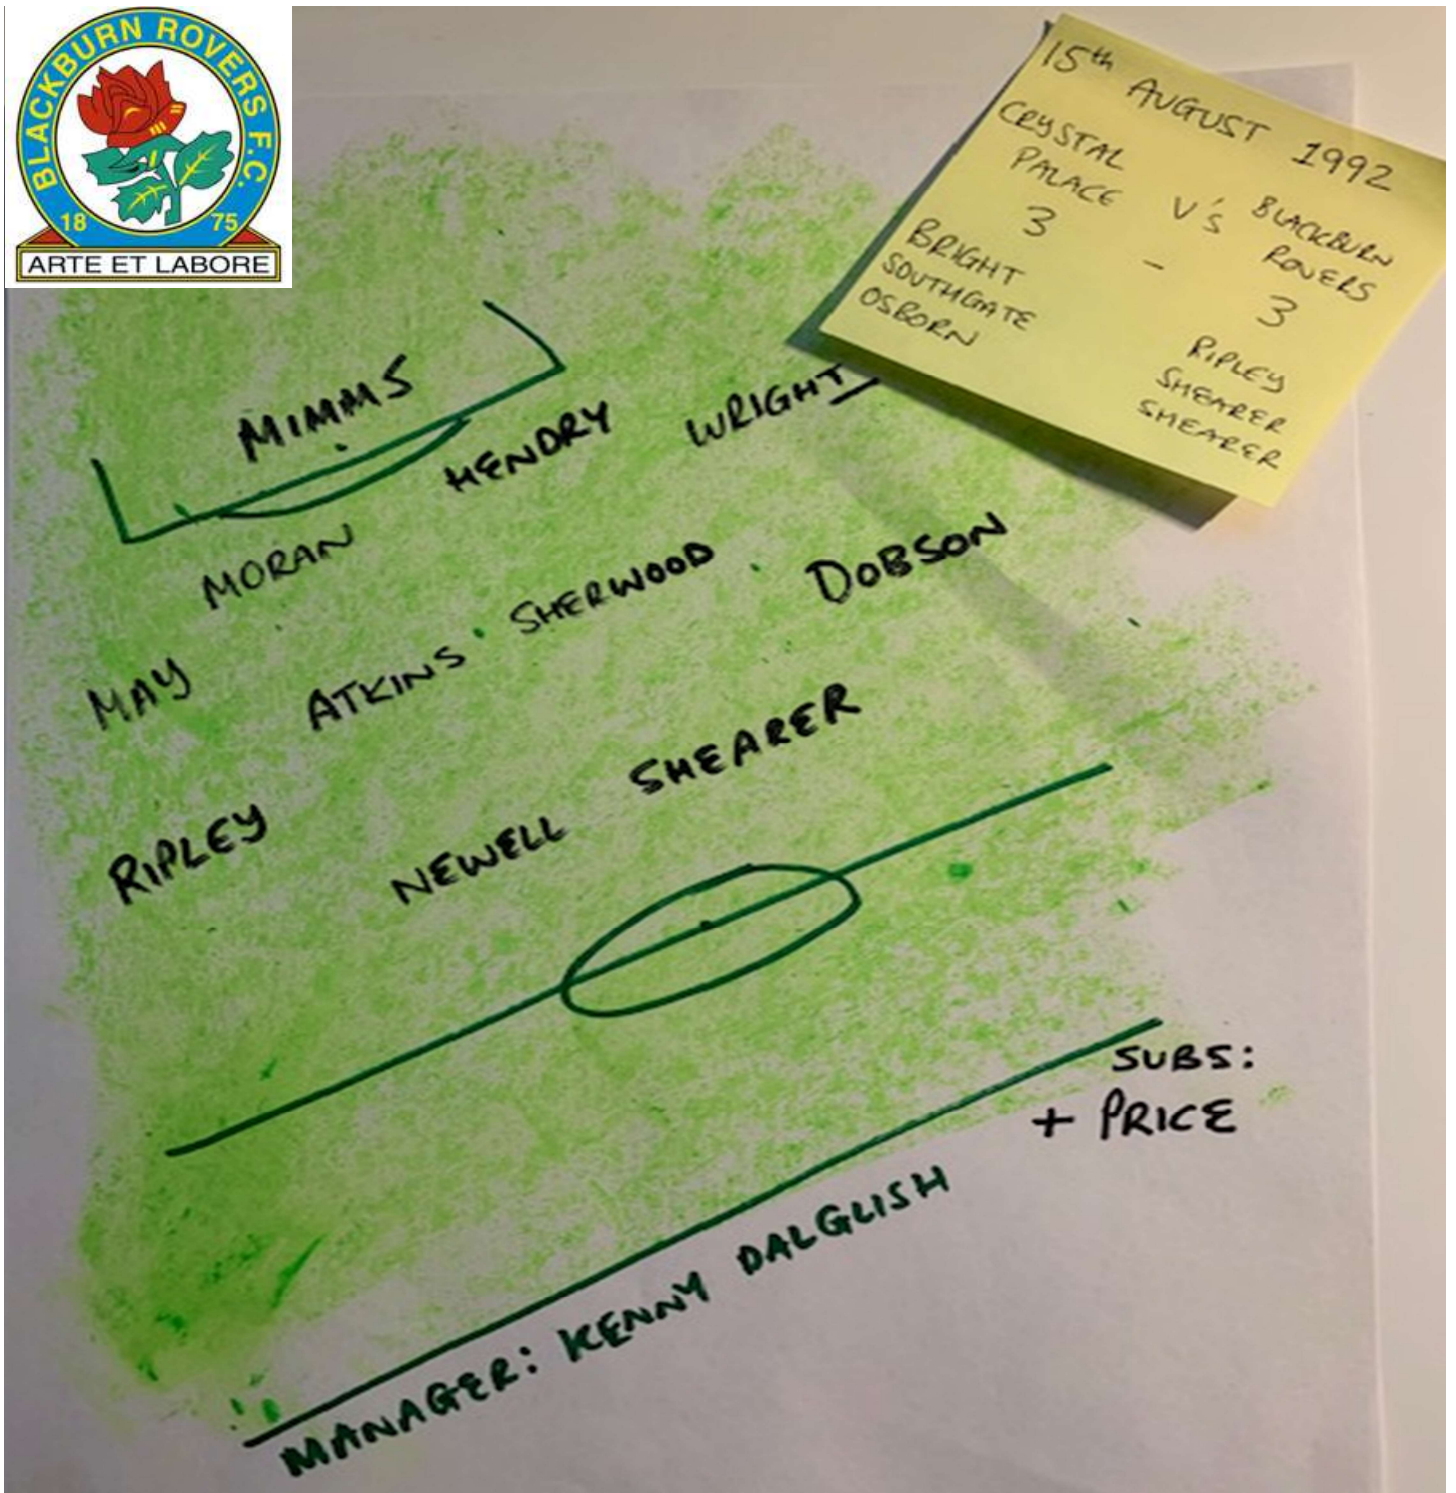 BLACKBURN ROVERS F.C.
18 75
ARTE ET LABORE
15th AUGUST 1992
CRYSTAL PALACE V'S BLACKBURN ROVERS
3 - 3
BRIGHT
SOUTHGATE
OSBORN
RIPLEY
SHEARER
SHEARER
MIMMS
MAY MORAN HENDRY WRIGHT
RIPLEY ATKINS SHERWOOD DOBSON
NEWELL SHEARER
SUBS:
+ PRICE
MANAGER: KENNY DALGLISH